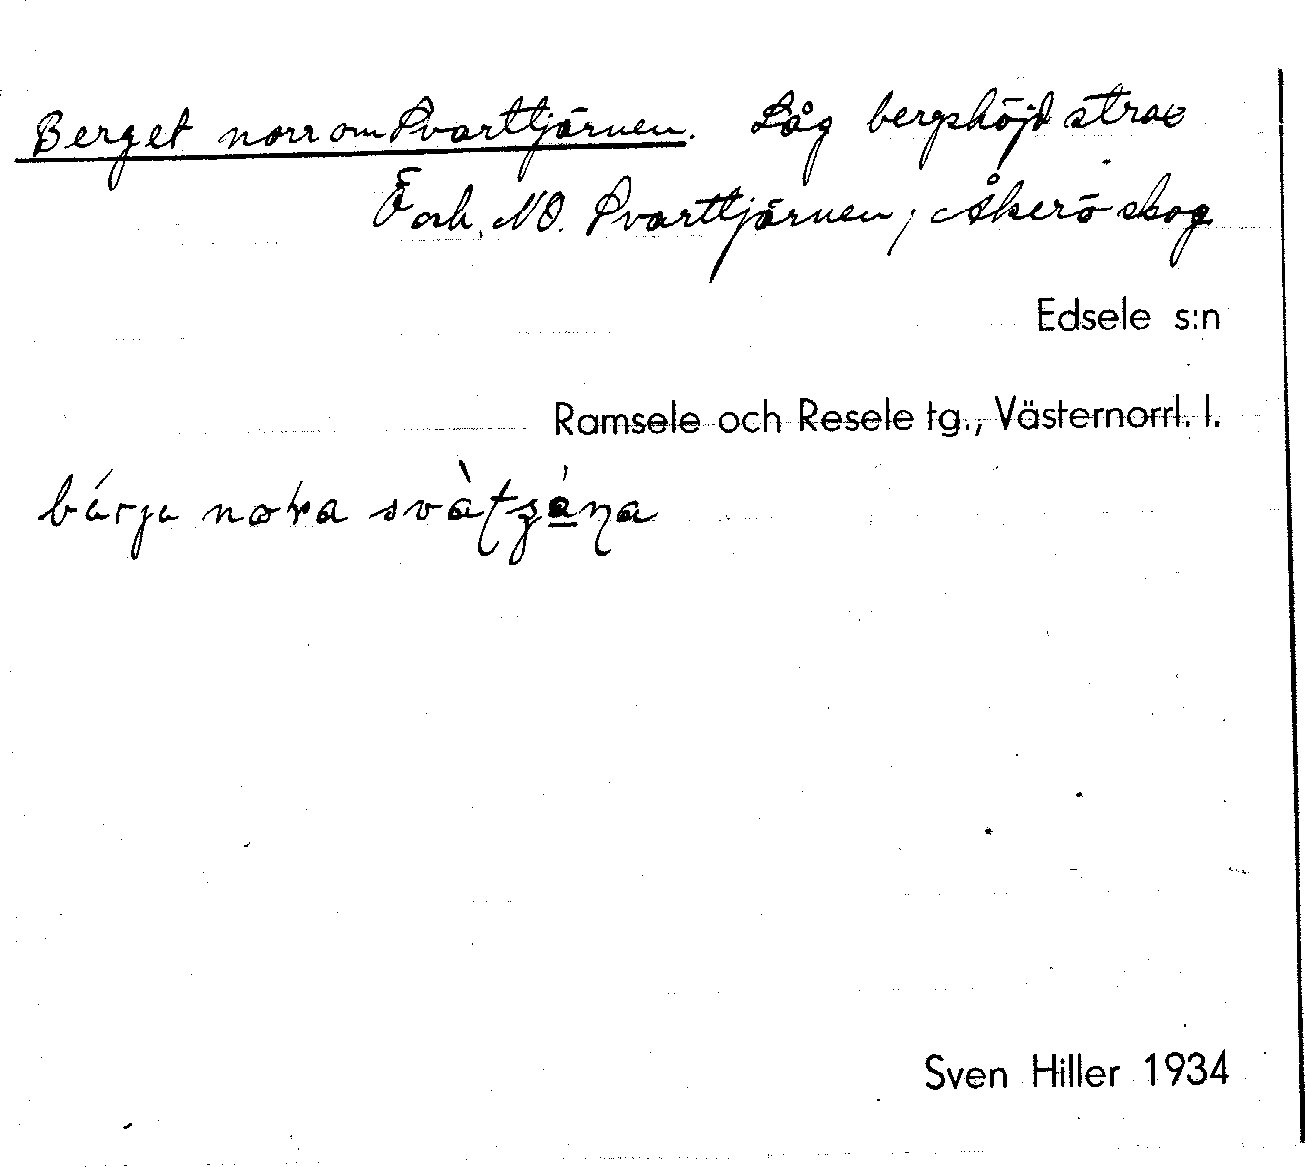 Berget norr om Svarttjärnen. Låg bergshöjd strax
Ö och NO. Svarttjärnen, Åkerö skog
Edsele s:n
Ramsele och Resele tg., Västernorrl. l.
Sven Hiller 1934